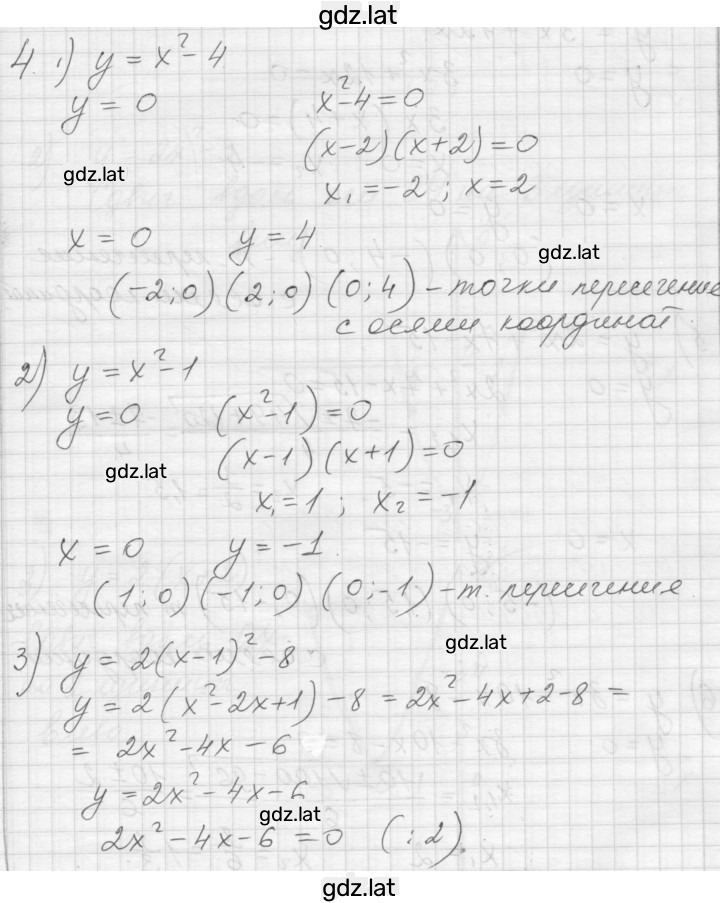 gdz.lat
4. 1) y = x² - 4
y = 0 x² - 4 = 0
(x-2)(x+2) = 0
gdz.lat
x₁ = -2 ; x = 2
x = 0 y = 4
gdz.lat
(-2; 0) (2; 0) (0; 4) - точки пересечение
с осями координат.
2) y = x² - 1
y = 0 (x² - 1) = 0
(x-1)(x+1) = 0
gdz.lat
x₁ = 1 ; x₂ = -1
x = 0 y = -1.
(1; 0) (-1; 0) (0; -1) - т. пересечения.
gdz.lat
3) y = 2(x-1)² - 8
y = 2(x² - 2x + 1) - 8 = 2x² - 4x + 2 - 8 =
= 2x² - 4x - 6
y = 2x² - 4x - 6
gdz.lat
2x² - 4x - 6 = 0 (:2).
gdz.lat